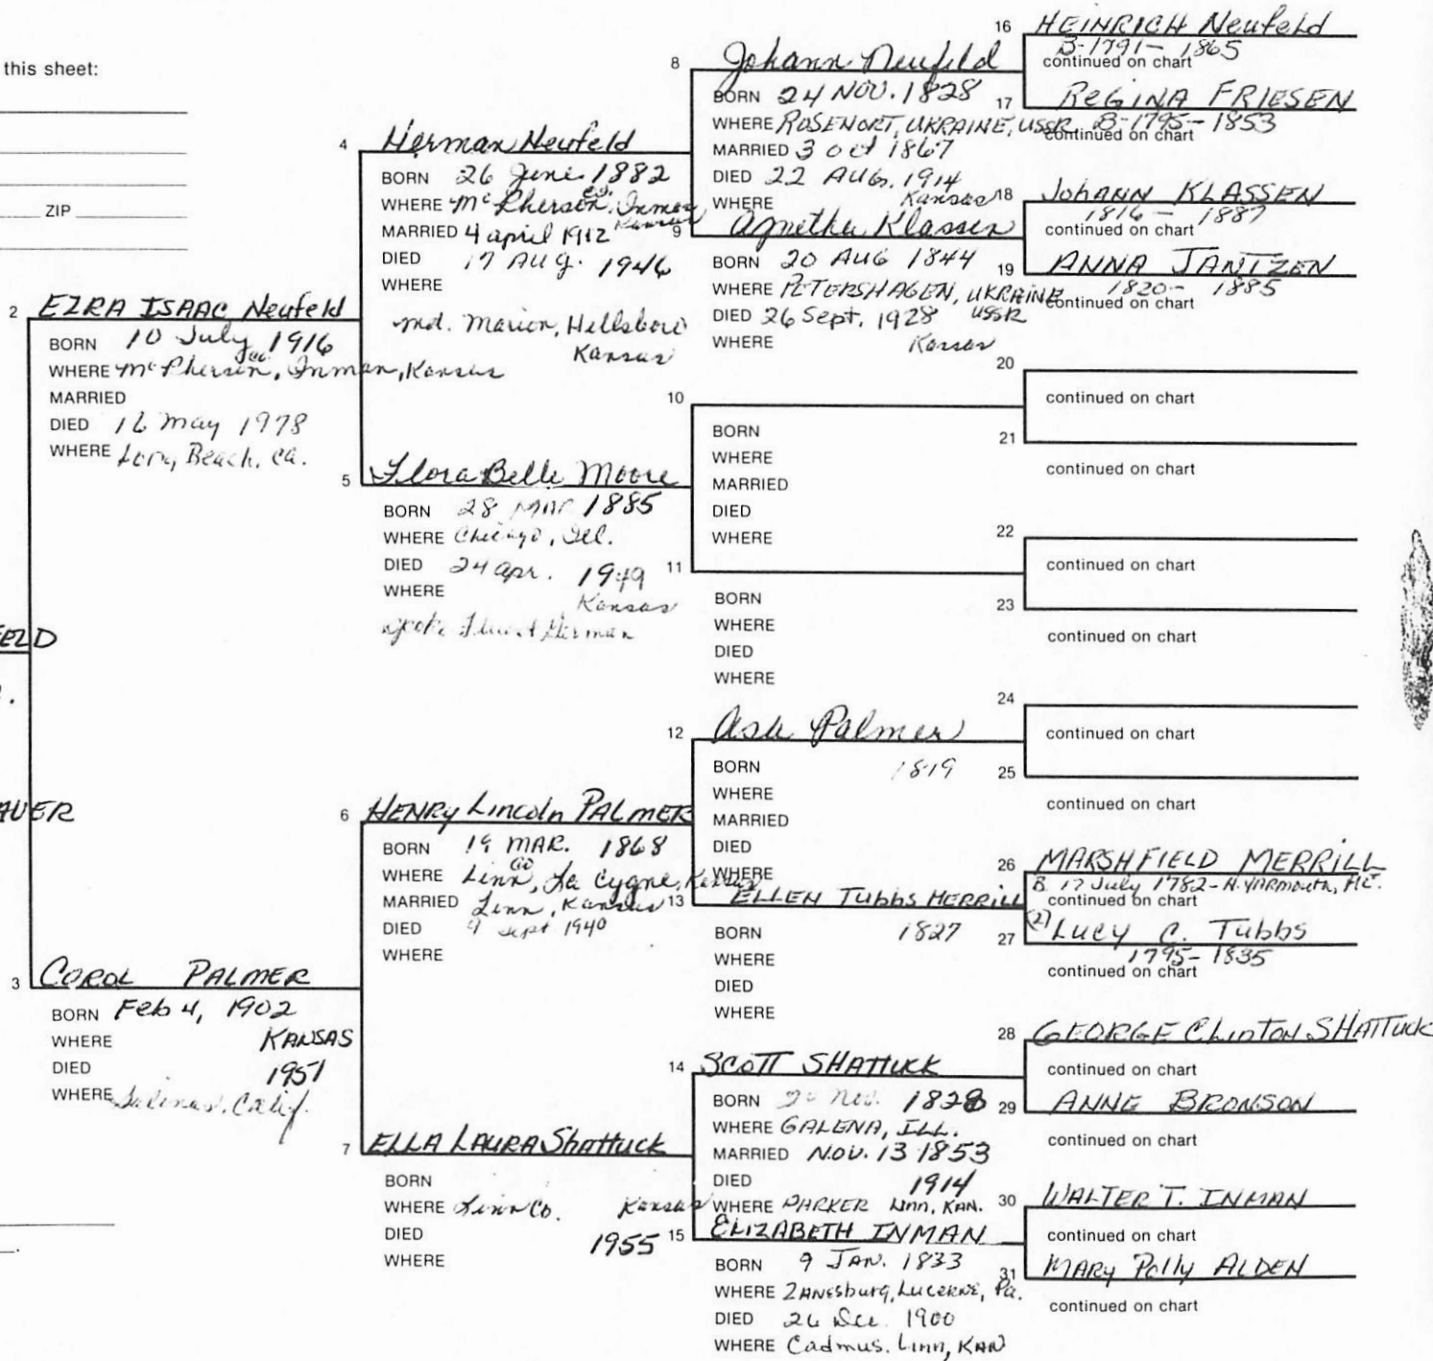 this sheet:
ZIP
ELD
AUER
2 EZRA ISAAC Neufeld
BORN 10 July 1916
WHERE McPherson, Co. Inman, Kansas
MARRIED
DIED 16 May 1978
WHERE Long Beach, Ca.
3 COROL PALMER
BORN Feb 4, 1902
WHERE KANSAS
DIED 1951
WHERE Salinas, Calif.
4 Herman Neufeld
BORN 26 June 1882
WHERE McPherson, Co. Inman Kansas
MARRIED 4 april 1912
DIED 17 AUG. 1946
WHERE
md. Marion, Hillsboro
Kansas
5 Flora Belle Moore
BORN 28 MAR 1885
WHERE Chicago, Ill.
DIED 24 apr. 1949
WHERE Kansas
spoke fluent German
6 HENRY Lincoln PALMER
BORN 19 MAR. 1868
WHERE Linn Co, La Cygne, Kansas
MARRIED Linn, Kansas
DIED 9 Sept 1940
WHERE
7 ELLA LAURA Shattuck
BORN
WHERE Linn Co. Kansas
DIED 1955
WHERE
8 Johann Neufeld
BORN 24 NOV. 1828
WHERE ROSENORT, UKRAINE, USSR
MARRIED 3 oct 1867
DIED 22 AUG. 1914
WHERE Kansas
9 Agnetha Klassen
BORN 20 AUG 1844
WHERE PETERSHAGEN, UKRAINE USSR
DIED 26 Sept. 1928
WHERE Kansas
10
BORN
WHERE
MARRIED
DIED
WHERE
11
BORN
WHERE
DIED
WHERE
12 Asa Palmer
BORN 1819
WHERE
MARRIED
DIED
WHERE
13 ELLEN TUBBS MERRILL
BORN 1827
WHERE
DIED
WHERE
14 SCOTT SHATTUCK
BORN Nov. 1828
WHERE GALENA, ILL.
MARRIED NOV. 13 1853
DIED 1914
WHERE PARKER Linn, KAN.
15 ELIZABETH INMAN
BORN 9 JAN. 1833
WHERE ZANESburg, LUCERNE, Pa.
DIED 26 Dec. 1900
WHERE Cadmus, Linn, KAN
16 HEINRICH Neufeld
B-1791- 1865
continued on chart
17 REGINA FRIESEN
B-1795-1853
continued on chart
18 JOHANN KLASSEN
1816 - 1887
continued on chart
19 ANNA JANTZEN
1820- 1885
continued on chart
20
continued on chart
21
continued on chart
22
continued on chart
23
continued on chart
24
continued on chart
25
continued on chart
26 MARSHFIELD MERRILL
B. 17 July 1782-N. YARMOUTH, ME.
continued on chart
27 (2) Lucy C. Tubbs
1795-1835
continued on chart
28 GEORGE CLINTON SHATTUCK
continued on chart
29 ANNE BRONSON
continued on chart
30 WALTER T. INMAN
continued on chart
31 MARY Polly ALDEN
continued on chart